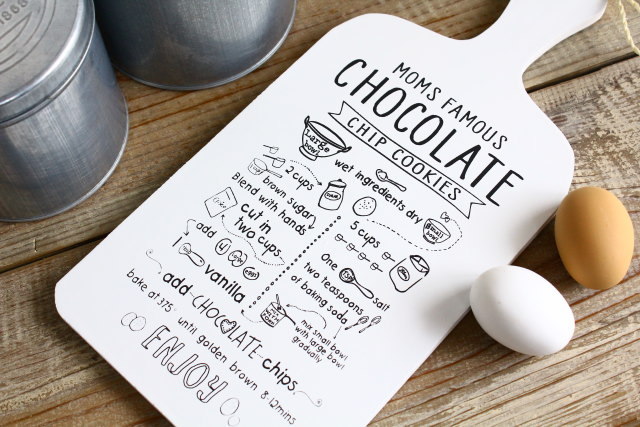 MOMS FAMOUS
CHOCOLATE
CHIP COOKIES
LARGE
bowl
wet ingredients dry
small
bowl
2 cups
brown sugar
Blend with hands
cut in
two cups
add 4 eggs
1 vanilla
5 cups
One salt
two teaspoons
of baking soda
mix small bowl
with large bowl
gradually
add CHOCOLATE chips
bake at 375° until golden brown 8-12mins
ENJOY